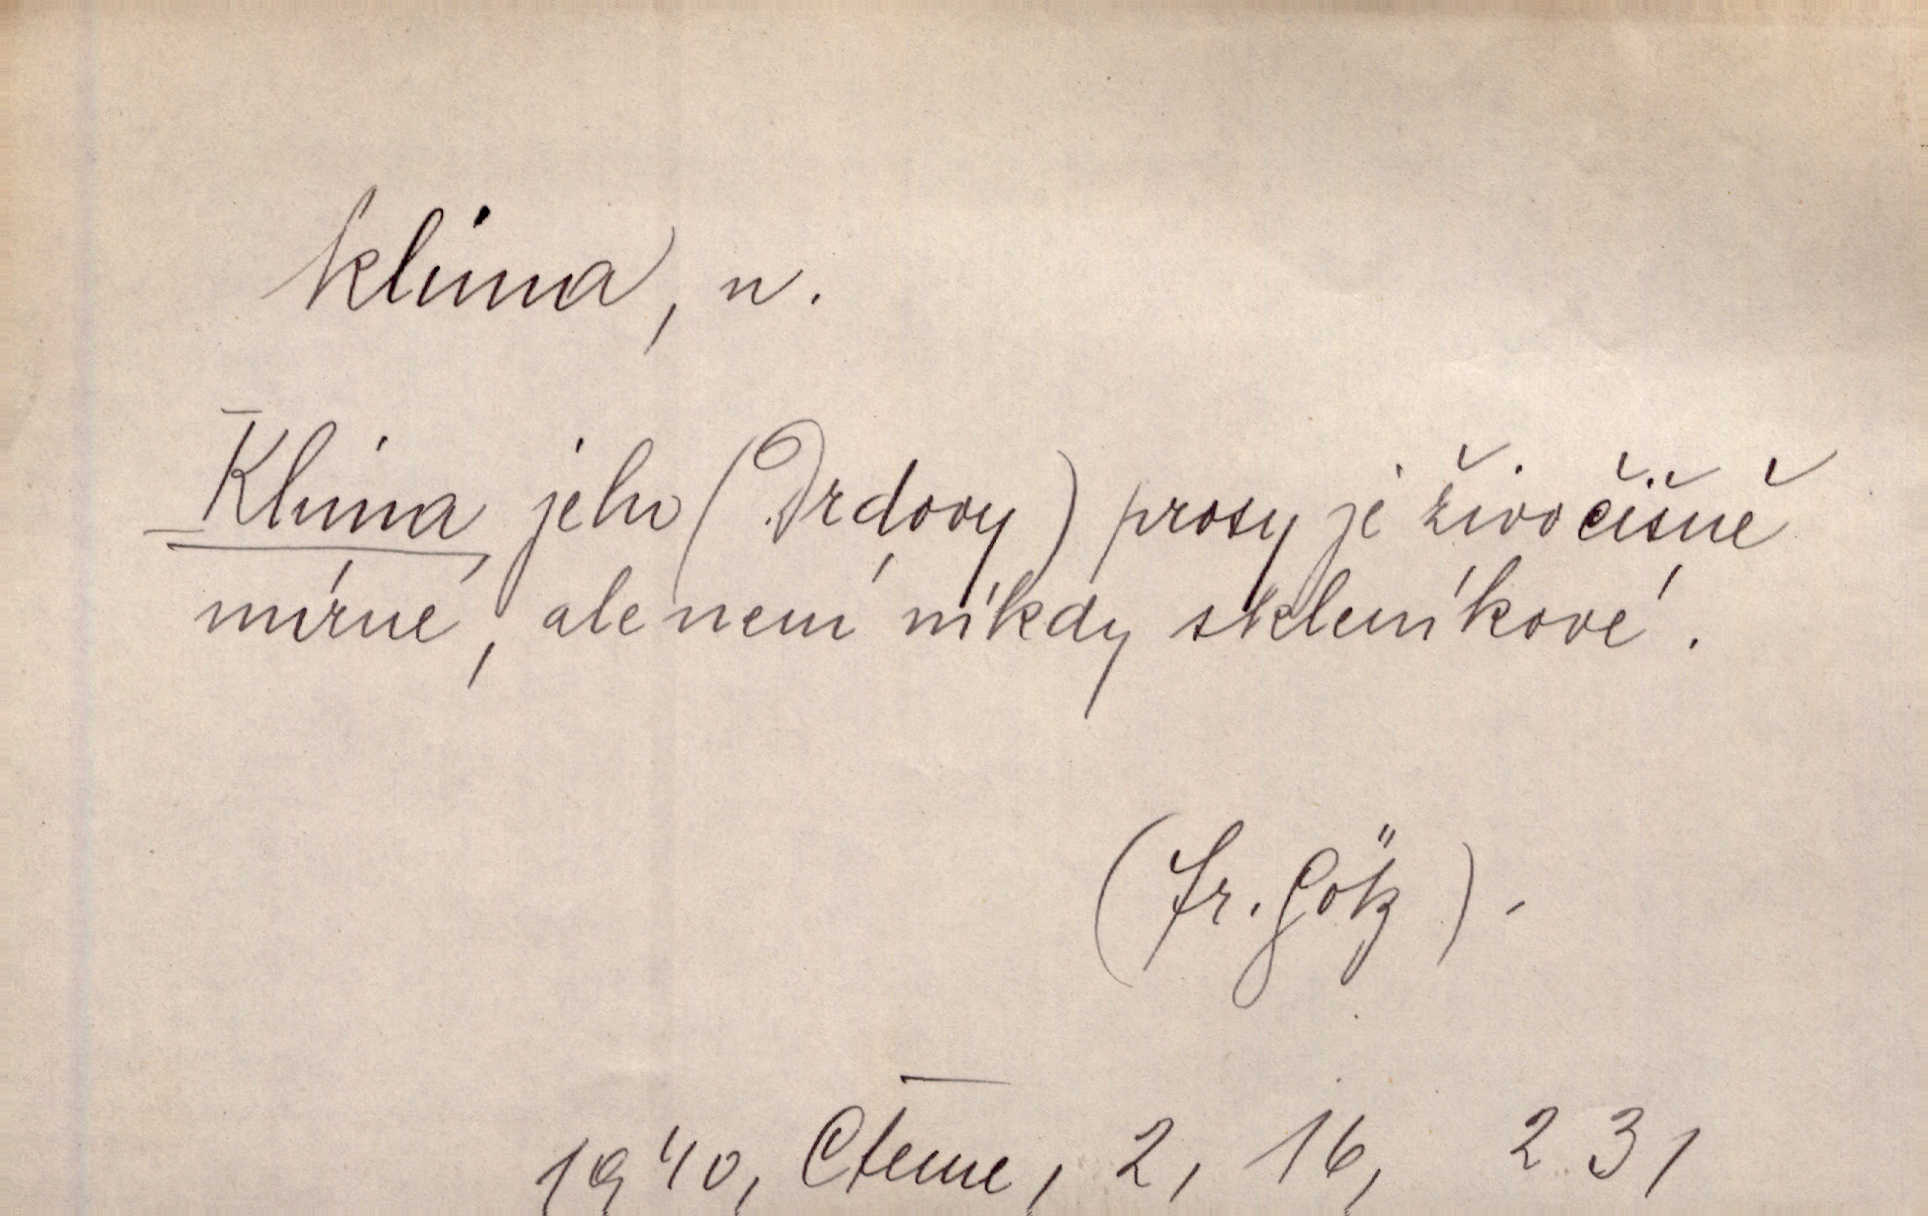 klima, n.
Klima jeho (Drdovy) prosy je živočišně
mírné, ale není nikdy skleníkové.
(Fr. Götz).
1940, Čteme, 2, 16, 231